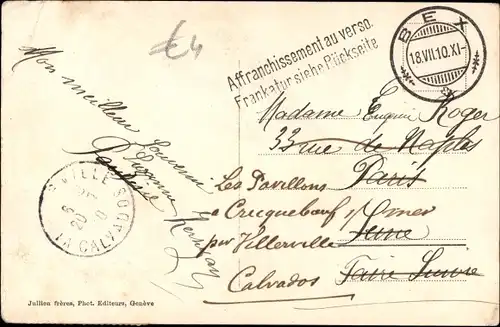 £4
Affranchissement au verso.
Frankatur siehe Rückseite
BEX
18.VII.10.XI-
Mon meilleur
Souvenir
Eugénie
Madame Eugénie Roger
33 rue de Naples
Paris
Les Pavillons
à Cricqueboeuf
par Villerville
Calvados
Faire Suivre
CALVADOS
Jullien frères, Phot. Editeurs, Genève